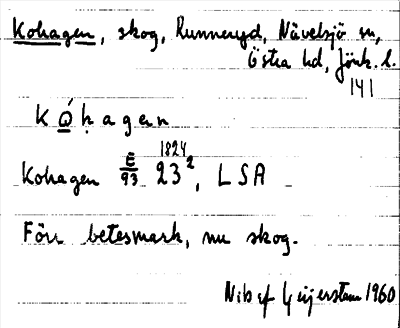 Kohagen, skog, Runneryd, Nävelsjö sn,
Östra hd, Jönk. l.
141
K ó ḥ a g e n
Kohagen E/93 1824 23², LSA
Förr betesmark, nu skog.
af Geijerstam 1960